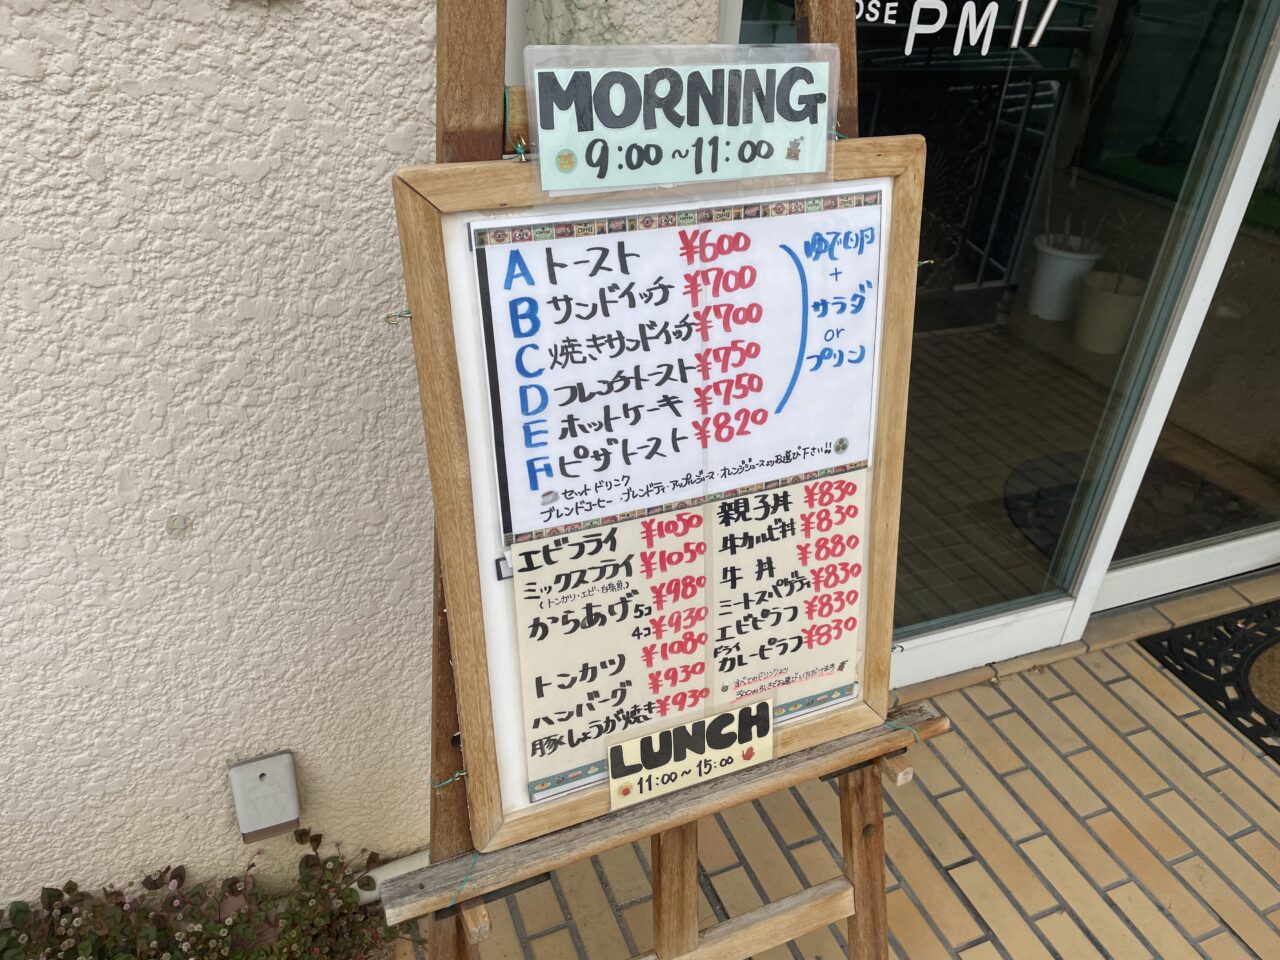 OSE PM 17
MORNING
9:00~11:00
A トースト ¥600
B サンドイッチ ¥700
C 焼きサンドイッチ ¥700
D フレンチトースト ¥750
E ホットケーキ ¥750
F ピザトースト ¥820
ゆで卵
+
サラダ
or
プリン
セットドリンク
ブレンドコーヒー・ブレンドティ・アップルジュース・オレンジジュースよりお選び下さい!!
エビフライ ¥1050
ミックスフライ ¥1050
(トンカツ・エビ・白身魚)
からあげ 5コ ¥980
4コ ¥930
トンカツ ¥1080
ハンバーグ ¥930
豚しょうが焼き ¥930
親子丼 ¥830
牛カルビ丼 ¥830
牛丼 ¥880
ミートスパゲティ ¥830
エビピラフ ¥830
ドライ
カレーピラフ ¥830
すべてのドリンクより
LUNCH
11:00~15:00